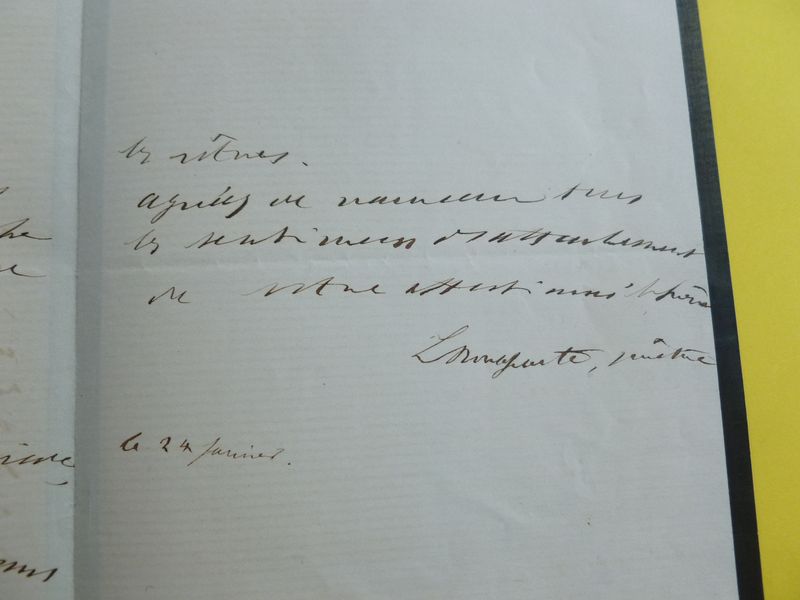 les vôtres.
agréez de nouveau tous
les sentimens d'attachement
de votre affectionné
L Bonaparte, prêtre
le 24 janvier.